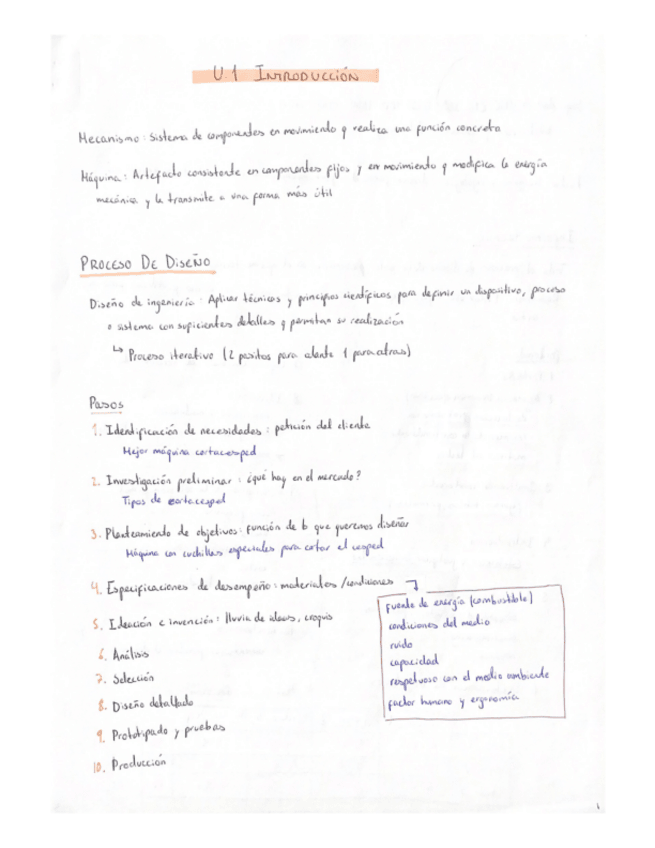 U.1 INTRODUCCIÓN
Mecanismo: Sistema de componentes en movimiento q realiza una función concreta
Máquina: Artefacto consistente en componentes fijos y en movimiento q modifica la energía
mecánica y la transmite a una forma más útil
PROCESO DE DISEÑO
Diseño de ingeniería: Aplicar técnicas y principios científicos para definir un dispositivo, proceso
o sistema con suficientes detalles q permitan su realización
↳ Proceso iterativo (2 pasitos para alante 1 para atras)
Pasos
1. Identificación de necesidades: petición del cliente
Mejor máquina cortacesped
2. Investigación preliminar: ¿qué hay en el mercado?
Tipos de cortacesped
3. Planteamiento de objetivos: función de lo que queremos diseñar
Máquina con cuchillas especiales para cortar el cesped
4. Especificaciones de desempeño: materiales/condiciones
fuente de energía (combustible)
condiciones del medio
ruido
capacidad
respetuoso con el medio ambiente
factor humano y ergonomía
5. Ideación e invención: lluvia de ideas, croquis
6. Análisis
7. Selección
8. Diseño detallado
9. Prototipado y pruebas
10. Producción
1